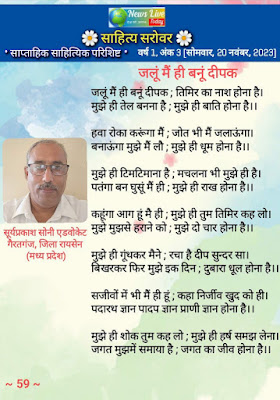 News Live
Today
साहित्य सरोवर
* साप्ताहिक साहित्यिक परिशिष्ट *
वर्ष 1, अंक 3 [सोमवार, 20 नवंबर, 2023]
जलूं मैं ही बनूं दीपक
जलूं मैं ही बनूं दीपक ; तिमिर का नाश होना है।
मुझे ही तेल बनना है ; मुझे ही बाति होना है।।
हवा रोका करूंगा मैं ; जोत भी मैं जलाऊंगा।
बनाऊंगा मुझे मैं लौ ; मुझे ही धूम होना है।।
मुझे ही टिमटिमाना है ; मचलना भी मुझे ही है।
पतंगा बन घुसूं मैं ही ; मुझे ही राख होना है।।
कहूंगा आग हूं मै ही ; मुझे ही तुम तिमिर कह लो।
मुझे मुझसे हराने को ; मुझे दो चार होना है।।
मुझे ही गूंथकर मैने ; रचा है दीप सुन्दर सा।
बिखरकर फिर मुझे इक दिन ; दुबारा धूल होना है।।
सजीवों में भी मैं ही हूं ; कहा निर्जीव खुद को ही।
पदारथ ज्ञान पादप ज्ञान प्राणी ज्ञान होना है।
मुझे ही शोक तुम कह लो ; मुझे ही हर्ष समझ लेना।
जगत मुझमें समाया है ; जगत का जीव होना है।।
सूर्यप्रकाश सोनी एडवोकेट
गैरतगंज, जिला रायसेन
(मध्य प्रदेश)
~ 59 ~